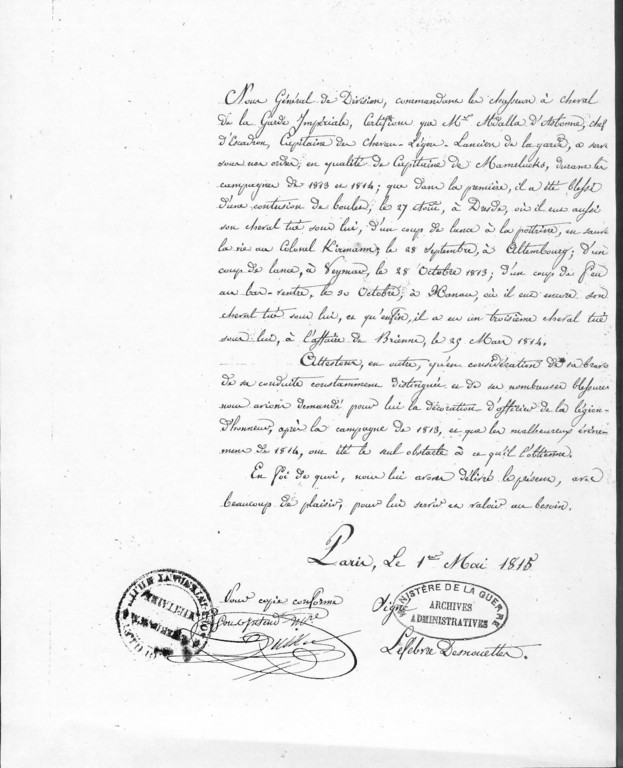 Nous Général de Division, commandant les chasseurs à cheval
de la Garde Impériale, Certifions que Mr. Mdalla d'Astonne, chef
d'Escadron, Capitaine des Chevau-Légers-Lanciers de la garde, a servi
sous nos ordres, en qualité de Capitaine de Mamelucks, durant les
campagnes de 1813 et 1814; que dans la première, il a été blessé
d'une contusion de boulet, le 27 Août, à Dresde, où il eut aussi
son cheval tué sous lui, d'un coup de lance à la poitrine, en sauvant
la vie au Colonel Kirmann, le 28 Septembre, à Altenbourg; d'un
coup de lance, à Veymar, le 28 Octobre 1813; d'un coup de feu
au bas-ventre, le 30 Octobre, à Hanau, où il eut encore son
cheval tué sous lui, et qu'enfin, il a eu un troisième cheval tué
sous lui, à l'affaire de Brienne, le 25 Mars 1814.
Attestons, en outre, qu'en considération de sa bravoure
de sa conduite constamment distinguée et de ses nombreuses blessures
nous avions demandé pour lui la décoration d'officier de la légion-
d'honneur, après la campagne de 1813, et que les malheureux événe-
mens de 1814, ont été le seul obstacle à ce qu'il l'obtienne.
En foi de quoi, nous lui avons délivré le présent, avec
beaucoup de plaisir, pour lui servir et valoir au besoin.
Paris, Le 1er Mai 1815
Pour copie conforme
Signé
Lefebvre Desnouettes.
MINISTÈRE DE LA GUERRE
ARCHIVES
ADMINISTRATIVES